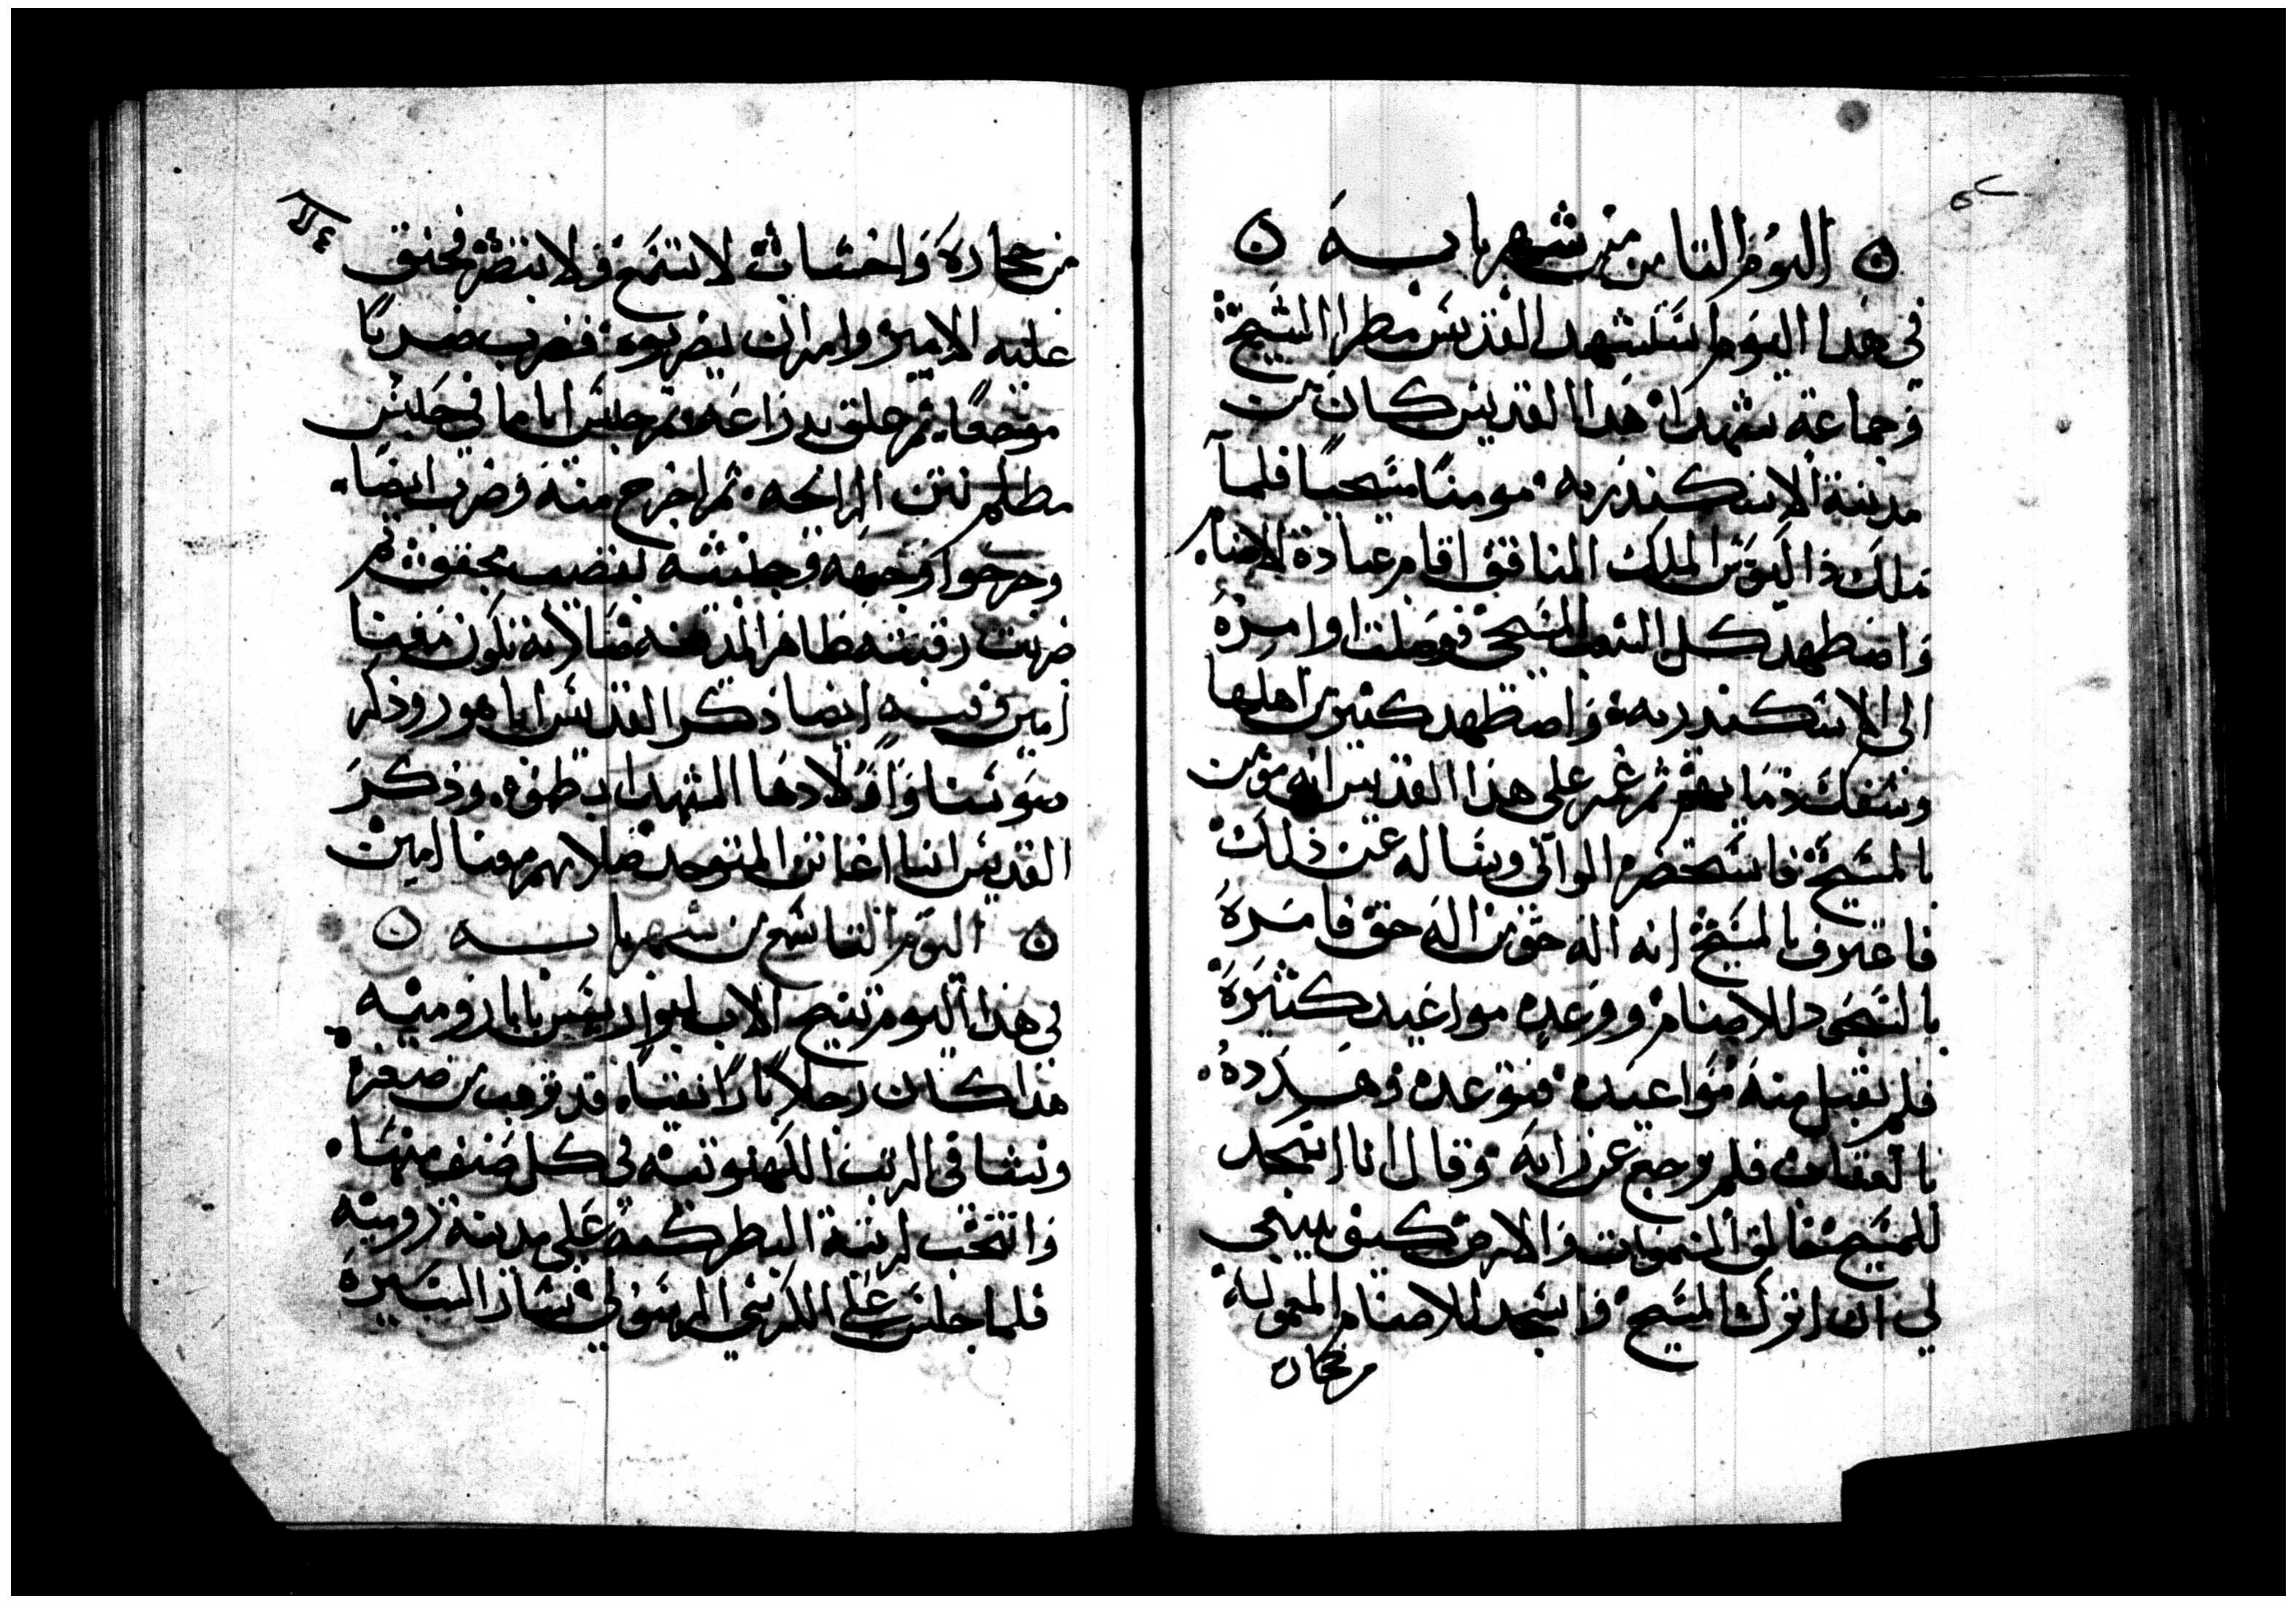 اليوم الثامن من شهر بابه
في هذا اليوم استشهد القديس مطرا الشيخ
وجماعة شهدا هذا القديس كان من
مدينة الاسكندريه مومنا مسيحيا فلما
ملك داكيوس الملك المنافق اقام عبادة الاصنام
واضطهد كل الشعب المسيحي فوصلت اوامره
الى الاسكندريه واضطهد كثير من اهلها
وسفك دمايهم ثم غمز على هذا القديس انه مومن
بالمسيح فاستحضره الوالي وساله عن ذلك
فاعترف بالمسيح انه اله حق من اله حق فامره
بالسجود للاصنام ووعده مواعيد كثيره
فلم يقبل منه مواعيده فتوعده وهدده
بالعقاب فلم يرجع عن رايه وقال انا اسجد
للمسيح خالق السموات والارض كيف ينبغي
لي ان اترك المسيح واسجد للاصنام المعموله
من حجاره
من حجاره واخشاب لا تسمع ولا تنظر فحنق
عليه الامير وامر ان يضربوه فضرب ضربا
موجعا ثم علق بذراعه ثم حبس اياما في حبس
مظلم نتن الرايحه ثم اخرج منه وضرب ايضا
وجرحوا وجهه وجنبيه بقضيب ثم
ضربت رقبته بظاهر المدينه صلاته تكون معنا
امين وفيه ايضا ذكر القديس ابا هور وذكر
سوسنا واولادها الشهدا بطوه وذكر
القديس انبا اغاتن المتوحد صلاتهم معنا امين
اليوم التاسع من شهر بابه
في هذا اليوم تنيح الاب ليواريوس بابا روميه
هذا كان رجلا بارا نقيا قد ترهب من صغره
ونشا في الرتب الكهنوتيه في كل صنف منها
وانتخب لرتبة البطركيه على مدينة روميه
فلما جلس على الكرسي الرسولي سار السيره